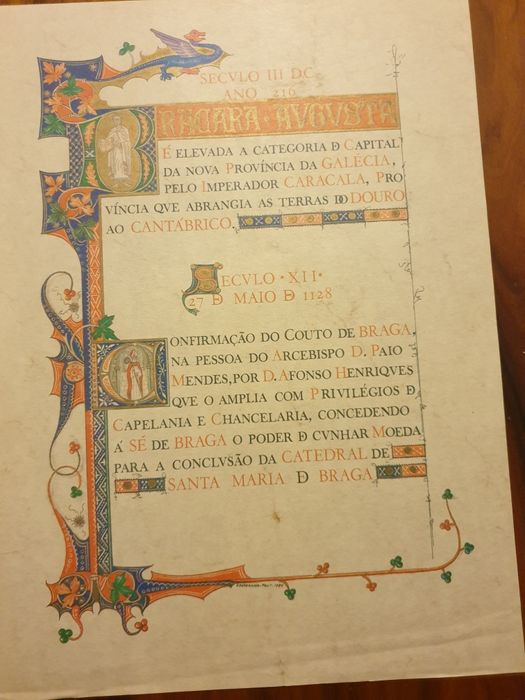 SECVLO III D.C.
ANO 216
BRACARA · AVGVSTA
É ELEVADA A CATEGORIA D CAPITAL
DA NOVA PROVÍNCIA DA GALÉCIA,
PELO IMPERADOR CARACALA, PRO
VÍNCIA QVE ABRANGIA AS TERRAS DO DOURO
AO CANTÁBRICO.
SECVLO · XII ·
27 D MAIO D 1128
CONFIRMAÇÃO DO COUTO DE BRAGA,
NA PESSOA DO ARCEBISPO D. PAIO
MENDES, POR D. AFONSO HENRIQVES
QVE O AMPLIA COM PRIVILÉGIOS D
CAPELANIA E CHANCELARIA, CONCEDENDO
Á SÉ DE BRAGA O PODER D CVNHAR MOEDA
PARA A CONCLVSÃO DA CATEDRAL DE
SANTA MARIA D BRAGA